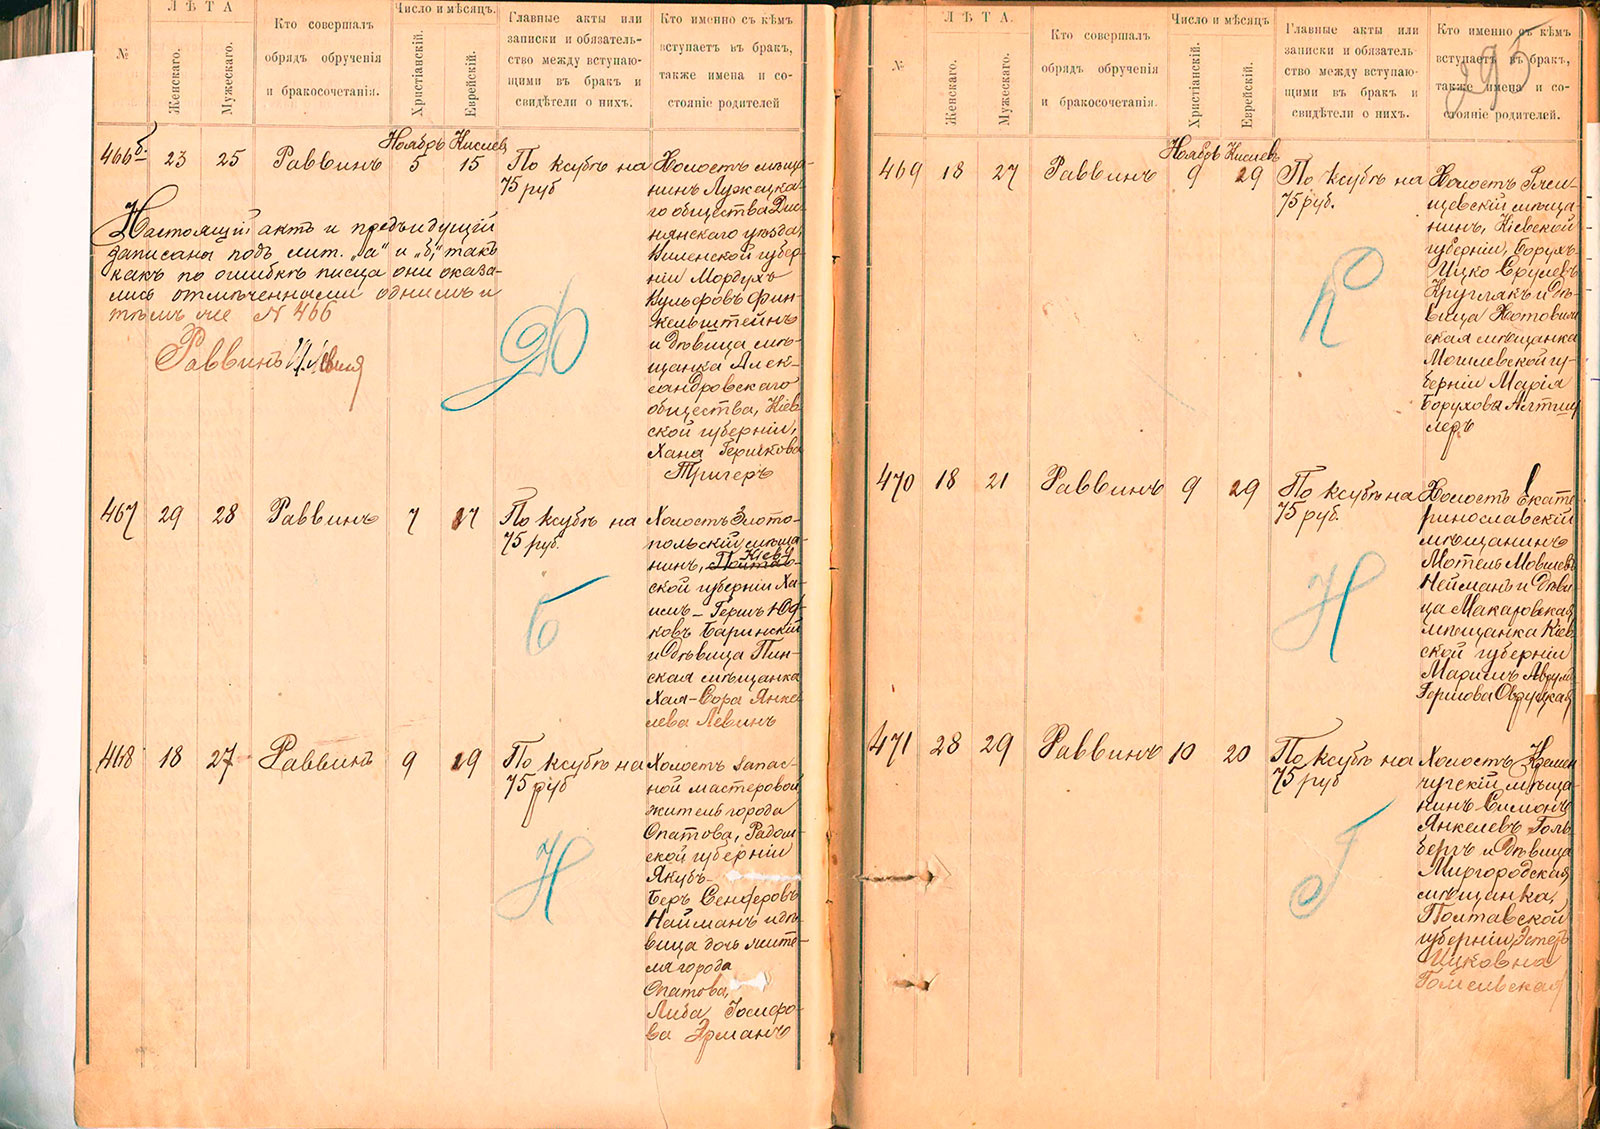 №
ЛѢТА
Женскаго.
Мужескаго.
Кто совершалъ
обрядъ обрученія
и бракосочетанія.
Число и мѣсяцъ.
Христіанскій.
Еврейскій.
Главные акты или
записки и обязатель-
ство между вступаю-
щими въ бракъ и
свидѣтели о нихъ.
Кто именно съ кѣмъ
вступаетъ въ бракъ,
также имена и со-
стояніе родителей
466 б. 23 25 Раввинъ
Ноябрь Кислев
5 15
По ксубѣ на
75 руб
Холостъ мѣща-
нинъ Лужецка-
го общества Дис-
нянскаго уѣзда,
Виленской губер-
ніи Мордухъ
Вульфовъ Фин-
кельштейнъ
и дѣвица мѣ-
щанка Алек-
сандровскаго
общества, Кіев-
ской губерніи,
Хана Гершкова
Тригеръ
Настоящій актъ и предъидущій
записаны подъ лит. „а“ и „б“, такъ
какъ по ошибкѣ писца они оказа-
лись отмѣченными однимъ и
тѣмъ же № 466
Раввинъ
Ф
467 29 28 Раввинъ 7 17
По ксубѣ на
75 руб.
Холостъ Злото-
польскій мѣща-
нинъ, Кіев-
ской губерніи Ха-
имъ-Гершъ Юф-
ковъ Баринскій
и дѣвица Пин-
ская мѣщанка
Хая-Сора Янке-
лева Левинъ
Б
468 18 27 Раввинъ 9 19
По ксубѣ на
75 руб
Холостъ запас-
ной мастеровой
житель города
Опатова, Радом-
ской губерніи
Якубъ-
Беръ Сенферовъ
Найманъ и дѣ-
вица дочь жите-
ля города
Опатова,
Либа Госифо-
ва Эрманъ
Н
№
ЛѢТА.
Женскаго.
Мужескаго.
Кто совершалъ
обрядъ обрученія
и бракосочетанія.
Число и мѣсяцъ
Христіанскій.
Еврейскій.
Главные акты или
записки и обязатель-
ство между вступаю-
щими въ бракъ и
свидѣтели о нихъ.
Кто именно съ кѣмъ
вступаетъ въ бракъ,
также имена и со-
стояніе родителей.
295
469 18 27 Раввинъ
Ноябрь Кислевъ
9 29
По ксубѣ на
75 руб.
Холостъ Ржи-
щевскій мѣща-
нинъ, Кіевской
губерніи, Борухъ-
Ицко Срулевъ
Круглякъ и дѣ-
вица Хотович-
ская мѣщанка
Могилевской гу-
берніи Марія
Борухова Альтшу
леръ
К
470 18 21 Раввинъ 9 29
По ксубѣ на
75 руб.
Холостъ Екате
ринославскій
мѣщанинъ
Мотель Мовшевъ
Нейманъ и дѣви
ца Макаровская
мѣщанка Кіев
ской губерніи
Маримъ Аврум-
Гершова Овруцкая
Н
471 28 29 Раввинъ 10 20
По ксубѣ на
75 руб
Холостъ Кремен
чугскій мѣща-
нинъ Симонъ
Янкелевъ Голь-
бергъ и дѣвица
Миргородская
мѣщанка,
Полтавской
губерніи, Эстеръ
Ицковна
Гомельская
Г